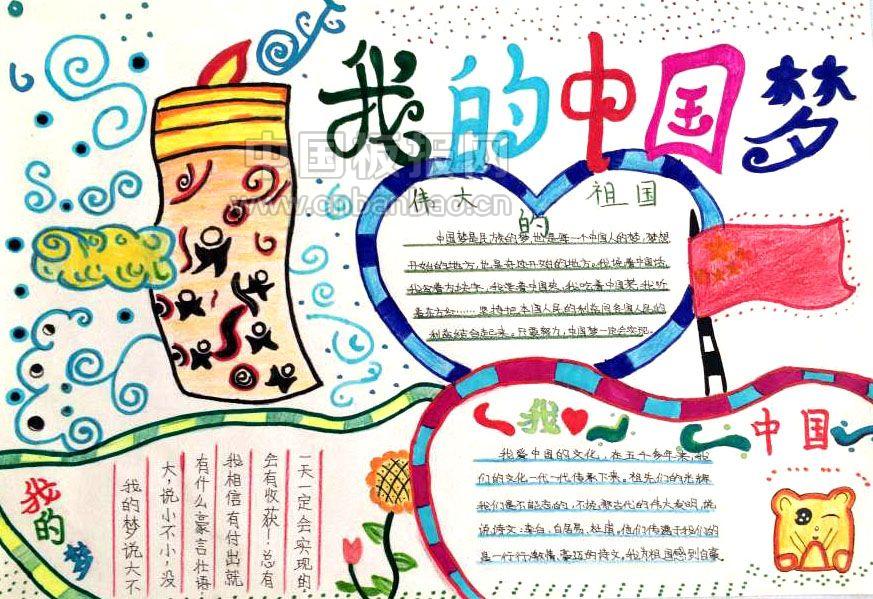 我的中国梦
中国板报网
www.cnbanbao.cn
伟大的祖国
中国梦是民族的梦,也是每一个中国人的梦。梦想
开始的地方,也是奇迹开始的地方。我说着中国话
我写着方块字,我 着中国 ,我吃着中国菜,我听
着东方红……坚持把本国人民的利益同各国人民的
利益结合起来。只要努力,中国梦一定会实现。
我的梦
我的梦说大不
大,说小不小,没
有什么豪言壮语
我相信有付出就
会有收获!总有
一天一定会实现的
我♥中国
我爱中国的文化,在五千多年来,我
们的文化一代一代传承下来。祖先们的光辉
我们是不能忘的,不 古代的伟大发明,说
说诗文:李白、白居易、杜甫,他们传递于我们的
是一行行激情、豪迈的诗文。我为祖国感到自豪